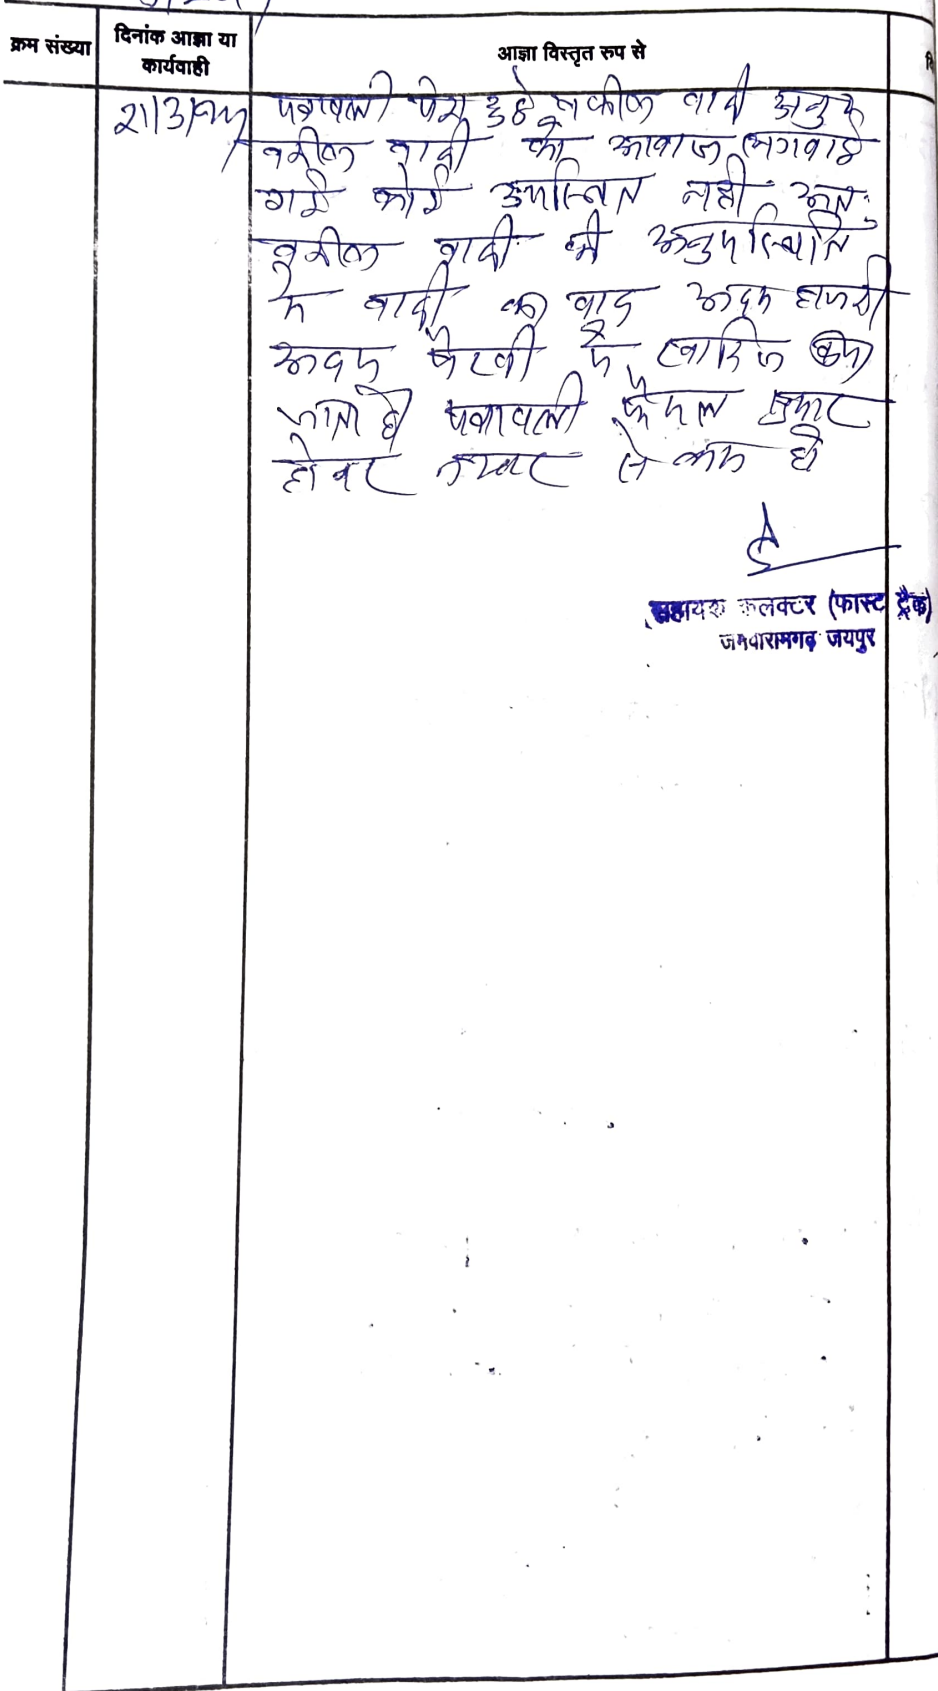 क्रम संख्या
दिनांक आज्ञा या
कार्यवाही
आज्ञा विस्तृत रुप से
पत्रावली पेश हुई वकील वादी अनु है
वकील वादी को आवाज लगवाई
गई कोई उपस्थित नहीं अतः
वकील वादी की अनुपस्थिति
में वादी का वाद अदम हाजरी
अदम पैरवी में खारिज किया
जाता है पत्रावली फैसल शुमार
होकर नम्बर से कम हो
सहायक कलक्टर (फास्ट ट्रैक)
जमवारामगढ़ जयपुर